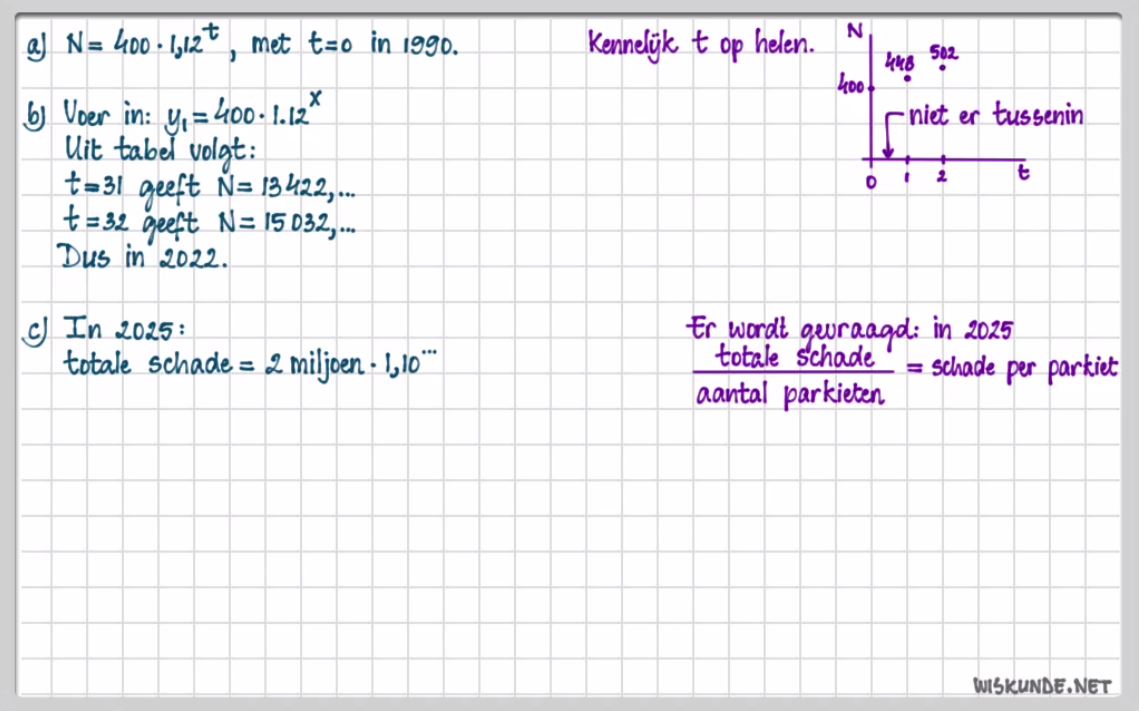 a) N = 400 · 1,12^t , met t=0 in 1990.
Kennelijk t op helen.
N
448
502
400
niet er tussenin
0 1 2 t
b) Voer in: y₁ = 400 · 1.12^x
Uit tabel volgt:
t=31 geeft N = 13422,...
t=32 geeft N = 15032,...
Dus in 2022.
c) In 2025:
totale schade = 2 miljoen · 1,10^...
Er wordt gevraagd: in 2025
totale schade
= schade per parkiet
aantal parkieten
WISKUNDE.NET